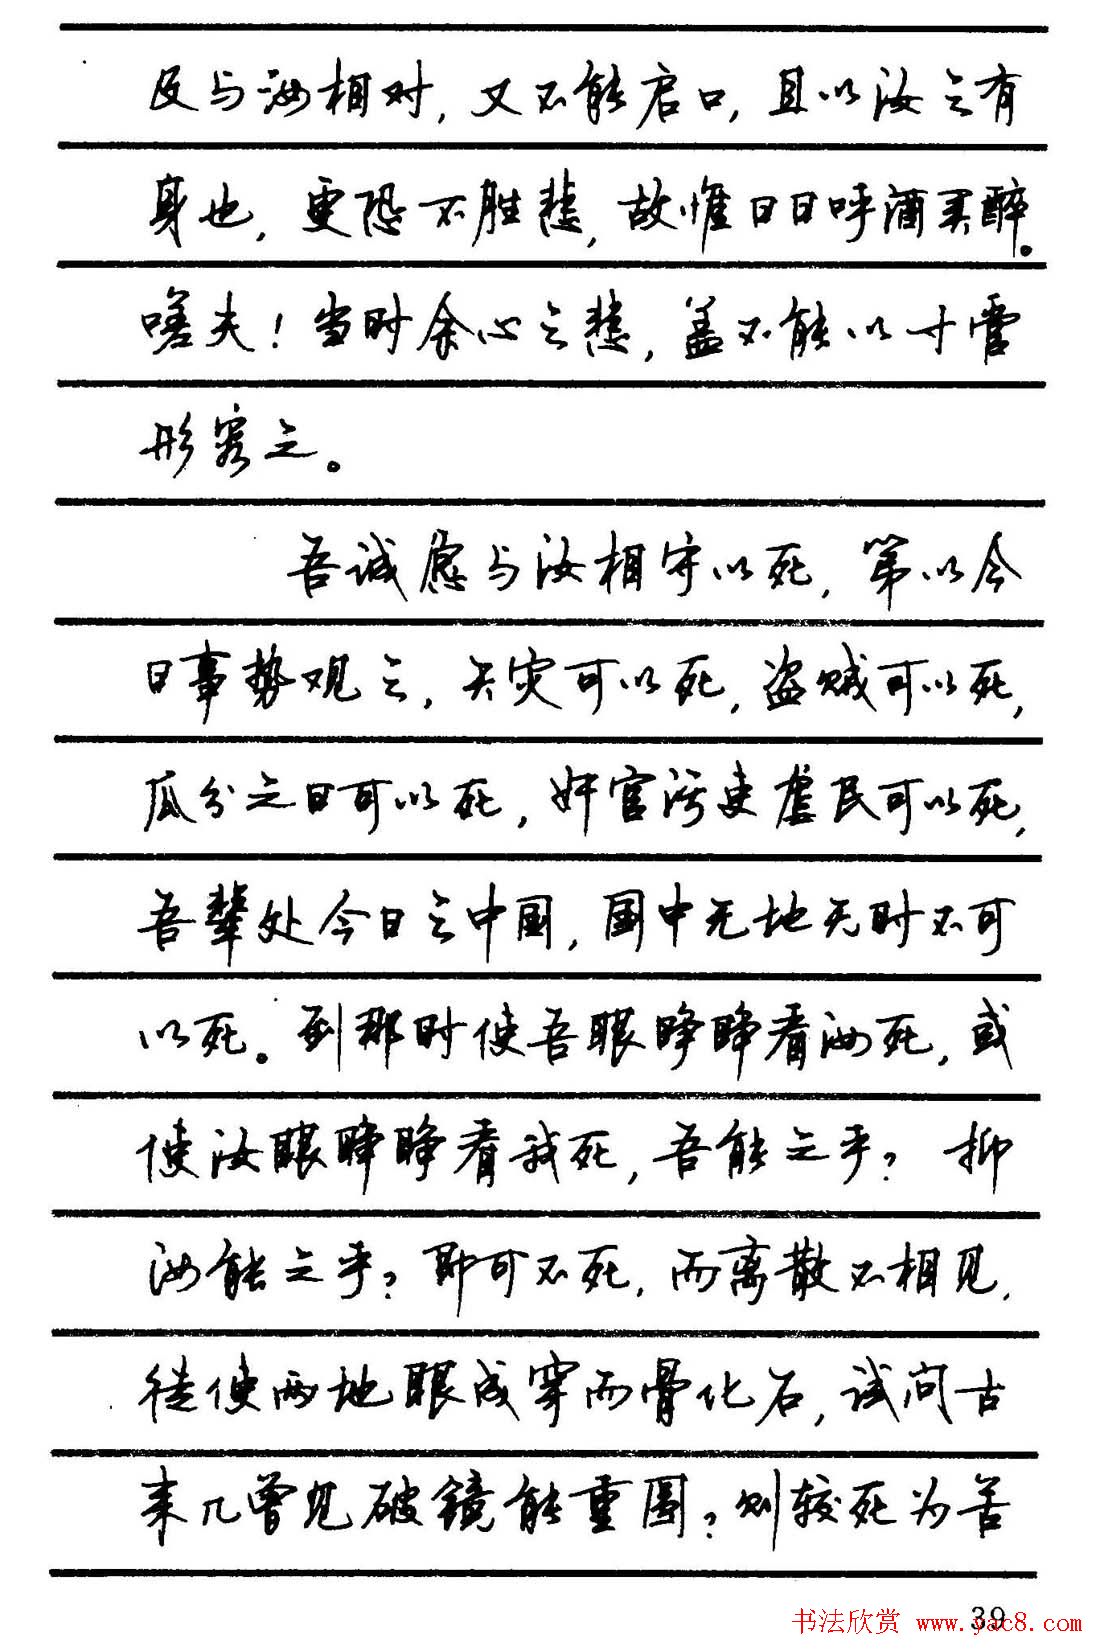 及与汝相对，又不能启口，且以汝之有
身也，更恐不胜悲，故惟日日呼酒买醉。
嗟夫！当时余心之悲，盖不能以寸管
形容之。
吾诚愿与汝相守以死，第以今
日事势观之，天灾可以死，盗贼可以死，
瓜分之日可以死，奸官污吏虐民可以死，
吾辈处今日之中国，国中无地无时不可
以死。到那时使吾眼睁睁看汝死，或
使汝眼睁睁看我死，吾能之乎？抑
汝能之乎？即可不死，而离散不相见，
徒使两地眼成穿而骨化石，试问古
来几曾见破镜能重圆？则较死为苦
39
书法欣赏 www.yac8.com